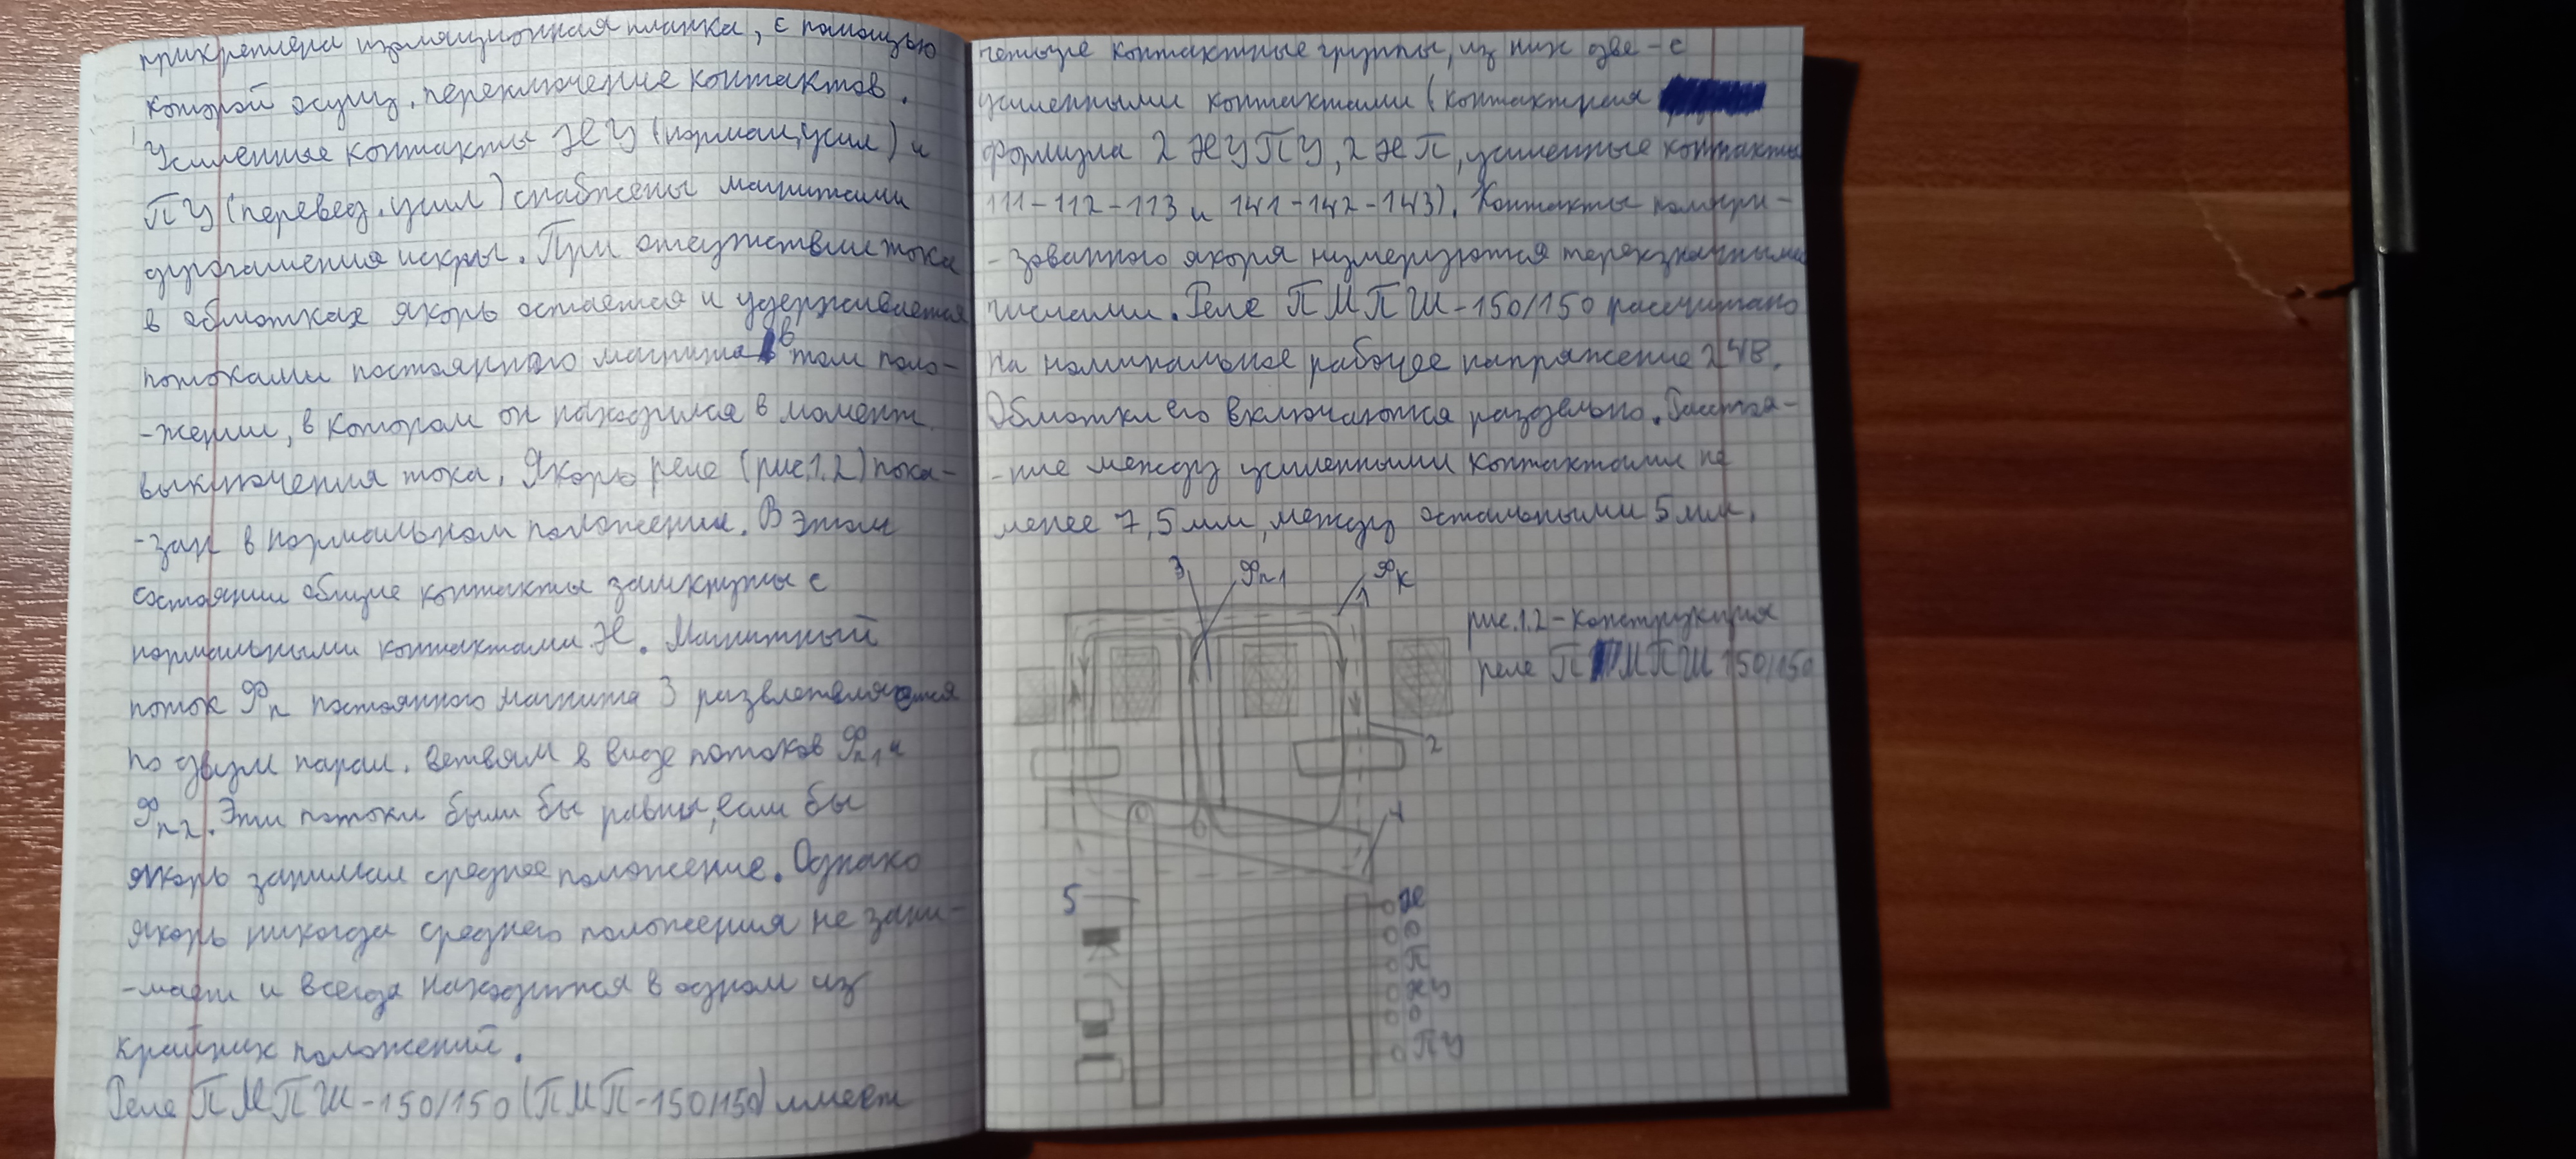 прикреплена изоляционная планка, с помощью
которой осущ. переключение контактов.
Усиленные контакты НУ (нормал. усил) и
ПУ (перевед. усил) снабжены магнитами
дугогашения искры. При отсутствии тока
в обмотках якорь остается и удерживается
потоками постоянного магнита в том поло-
-жении, в котором он находился в момент
выключения тока. Якорь реле (рис.1.2) пока-
-зан в нормальном положении. В этом
состоянии общие контакты замкнуты с
нормальными контактами Н. Магнитный
поток Фп постоянного магнита 3 разветвляется
по двум парал. ветвям в виде потоков Фп1 и
Фп2. Эти потоки были бы равны, если бы
якорь занимал среднее положение. Однако
якорь никогда среднего положения не зани-
-мает и всегда находится в одном из
крайних положений.
Реле ПМПШ-150/150 (ПМП-150/150) имеет
четыре контактные группы, из них две - с
усиленными контактами (контактная
формула 2 НУПУ, 2 НП, усиленные контакты
111-112-113 и 141-142-143). Контакты поляри-
-зованного якоря нумеруются трехзначными
числами. Реле ПМПШ-150/150 рассчитано
на номинальное рабочее напряжение 24В.
Обмотки его включаются раздельно. Расстоя-
-ние между усиленными контактами не
менее 7,5мм, между остальными 5мм.
3 Фп1 Фк
1
рис.1.2-конструкция
реле ПМПШ 150/150
2
4
5
Н
О
П
НУ
О
ПУ